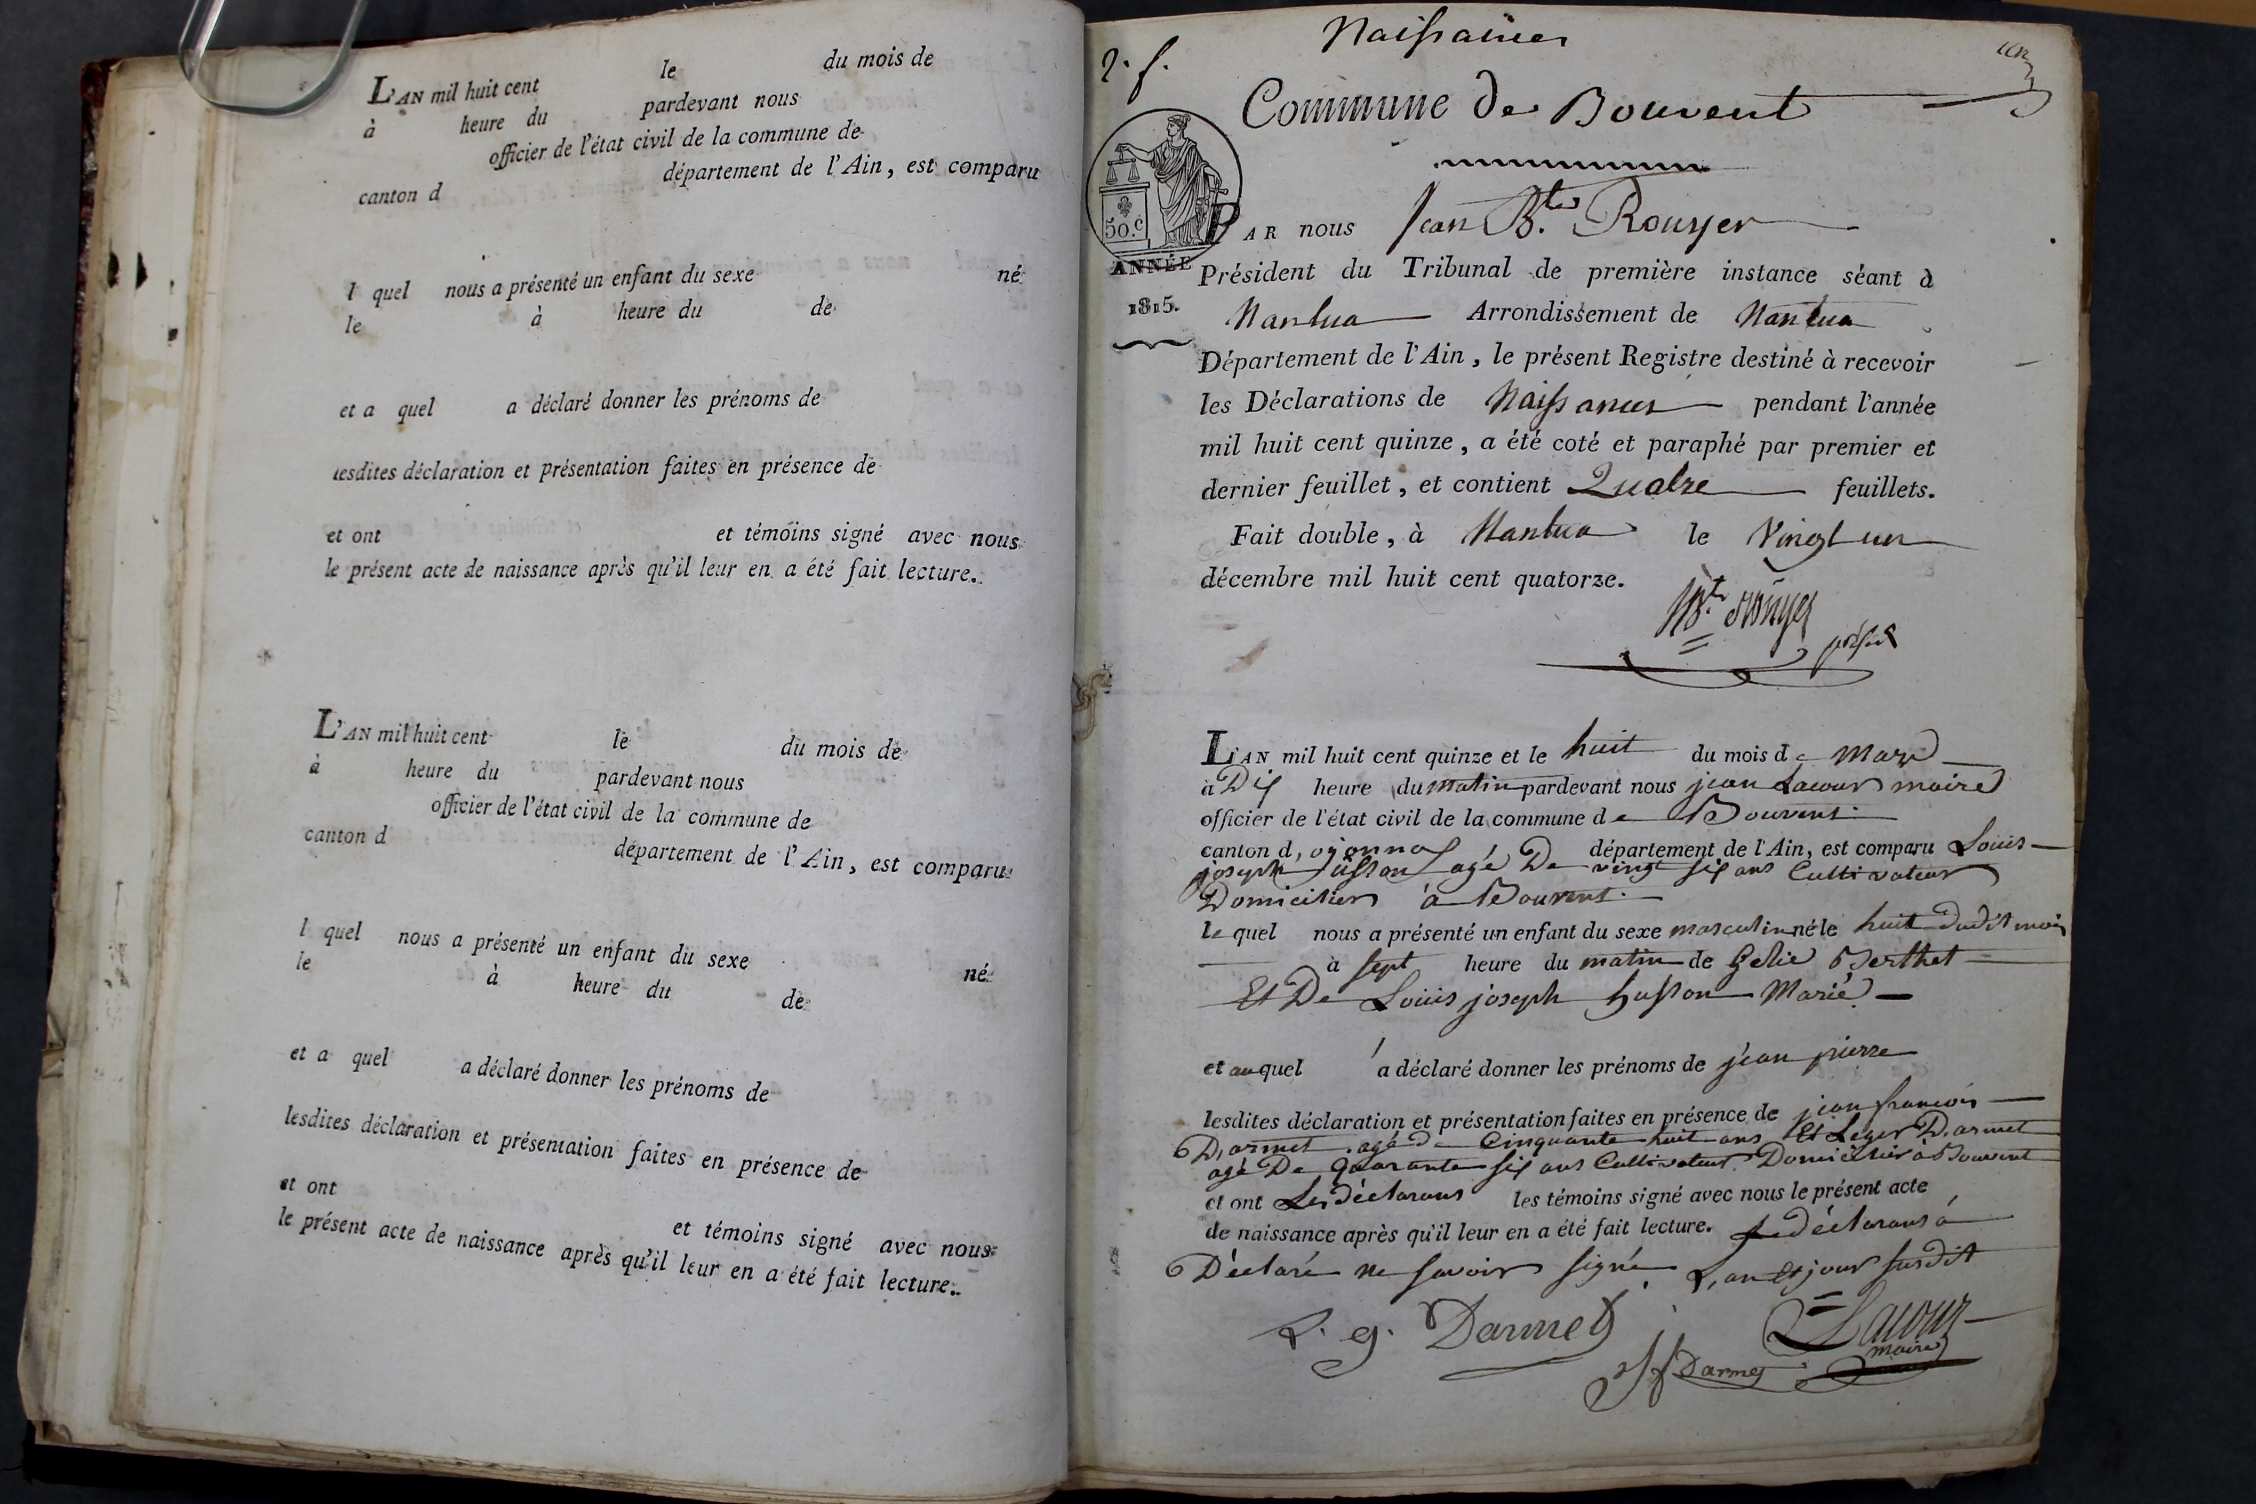 L'AN mil huit cent le du mois de
à heure du pardevant nous
officier de l'état civil de la commune de
canton d département de l'Ain, est comparu
l quel nous a présenté un enfant du sexe né
le à heure du de
et a quel a déclaré donner les prénoms de
lesdites déclaration et présentation faites en présence de
et ont et témoins signé avec nous
le présent acte de naissance après qu'il leur en a été fait lecture.
L'AN mil huit cent le du mois de
à heure du pardevant nous
officier de l'état civil de la commune de
canton d département de l'Ain, est comparu
l quel nous a présenté un enfant du sexe né
le à heure du de
et a quel a déclaré donner les prénoms de
lesdites déclaration et présentation faites en présence de
et ont et témoins signé avec nous
le présent acte de naissance après qu'il leur en a été fait lecture.
Naissances
2. f.
un
Commune de Bouvent
50.c
ANNÉE
1815.
PAR nous Jean Bte. Rouyer
Président du Tribunal de première instance séant à
Nantua Arrondissement de Nantua
Département de l'Ain, le présent Registre destiné à recevoir
les Déclarations de Naissances pendant l'année
mil huit cent quinze, a été coté et paraphé par premier et
dernier feuillet, et contient Quatre feuillets.
Fait double, à Nantua le Vingt un
décembre mil huit cent quatorze.
Bte Rouyer
présid
L'AN mil huit cent quinze et le huit du mois de Mars
à Dix heure du matin pardevant nous jean Lacour maire
officier de l'état civil de la commune de Bouvent
canton d'oyonnax département de l'Ain, est comparu Louis
joseph husson agé De vingt six ans Cultivateur
Domicilier à Bouvent
le quel nous a présenté un enfant du sexe masculin né le huit dudit mois
à sept heure du matin de Berthet
Et De Louis joseph husson Marié
et au quel a déclaré donner les prénoms de jean pierre
lesdites déclaration et présentation faites en présence de jean francois
Darmet agé de Cinquante huit ans Et Leger Darmet
agé De quarante six ans Cultivateur Domicilier à Bouvent
et ont Les déclarans les témoins signé avec nous le présent acte
de naissance après qu'il leur en a été fait lecture. Le déclarans a
Déclaré ne savoir signé L'an et jour susdit
L. g. Darmet
Lacour
maire
Jf Darmet